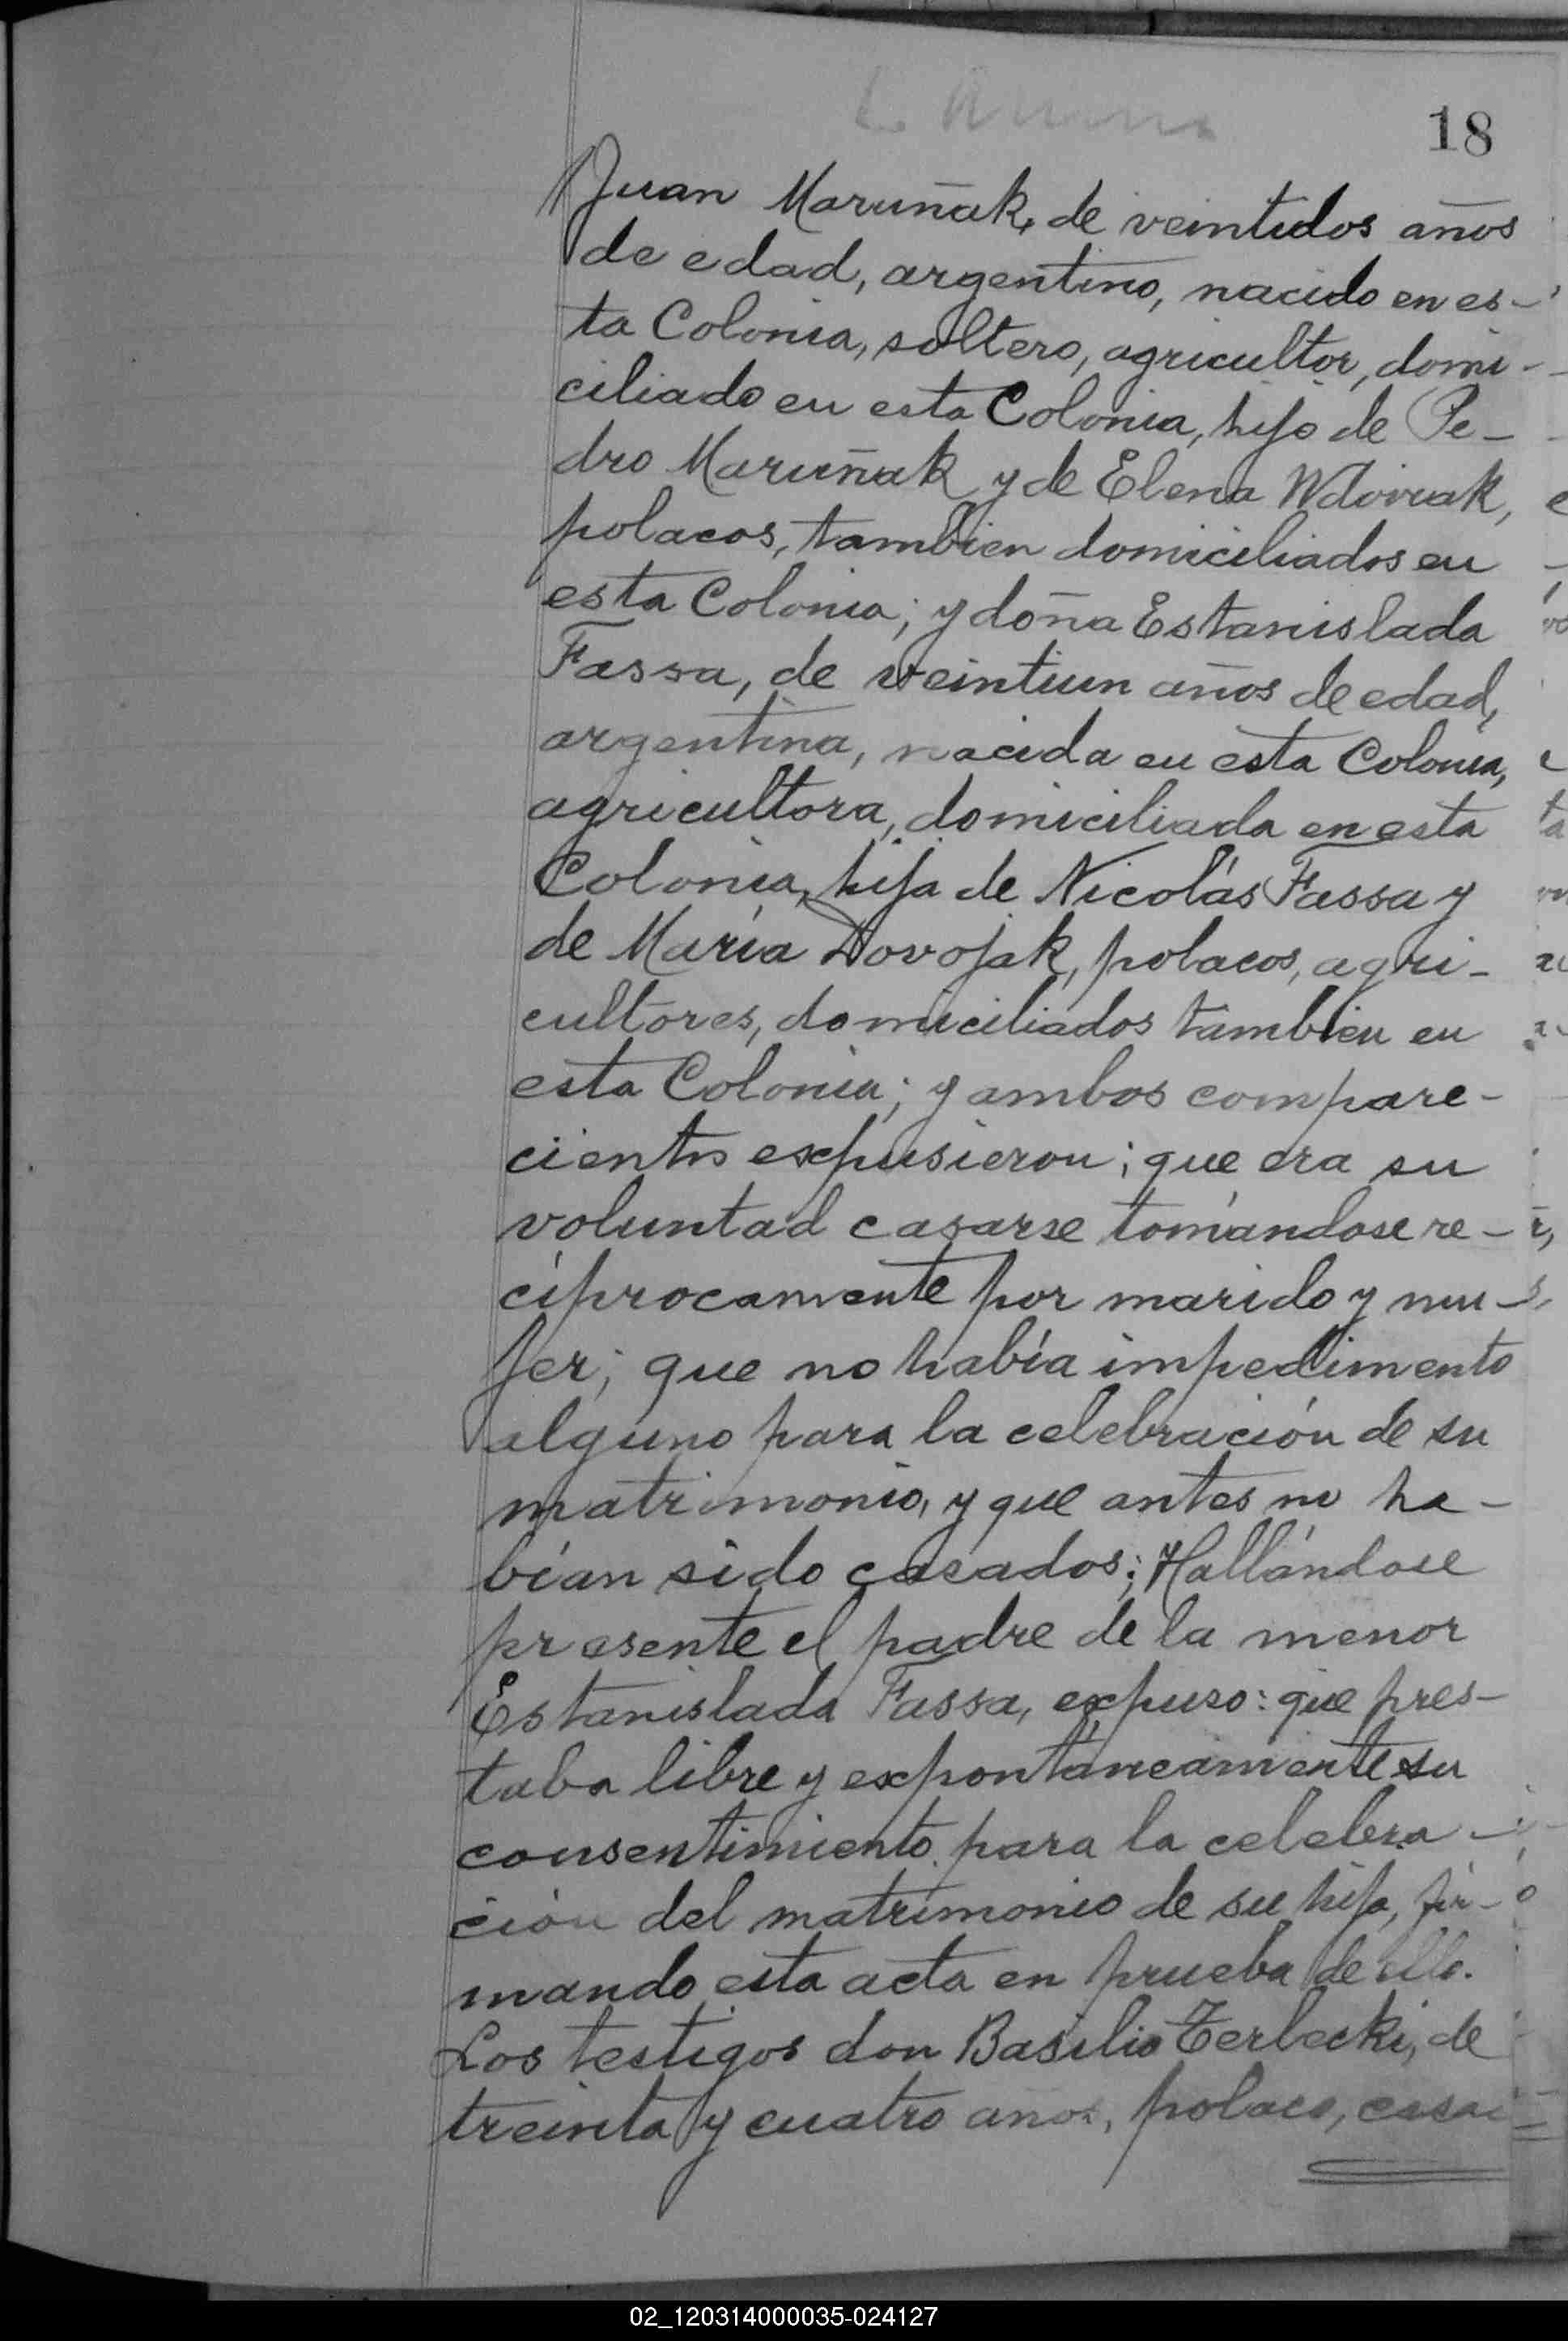 18
Juan Maruñak, de veintidos años
de edad, argentino, nacido en es-
ta Colonia, soltero, agricultor, domi-
ciliado en esta Colonia, hijo de Pe-
dro Maruñak y de Elena Wdoviak,
polacos, tambien domiciliados en
esta Colonia; y doña Estanislada
Fassa, de veintiun años de edad,
argentina, nacida en esta Colonia,
agricultora, domiciliada en esta
Colonia, hija de Nicolás Fassa y
de María Dovojak, polacos, agri-
cultores, domiciliados tambien en
esta Colonia; y ambos compare-
cientes expusieron; que era su
voluntad casarse tomándose re-
cíprocamente por marido y mu-
jer; que no había impedimento
alguno para la celebración de su
matrimonio, y que antes no ha-
bían sido casados; Hallándose
presente el padre de la menor
Estanislada Fassa, expuso: que pres-
taba libre y expontáneamente su
consentimiento para la celebra-
ción del matrimonio de su hija, fir-
mando esta acta en prueba de ello.
Los testigos don Basilio Terlecki, de
treinta y cuatro años, polaco, casa-
02_120314000035-024127